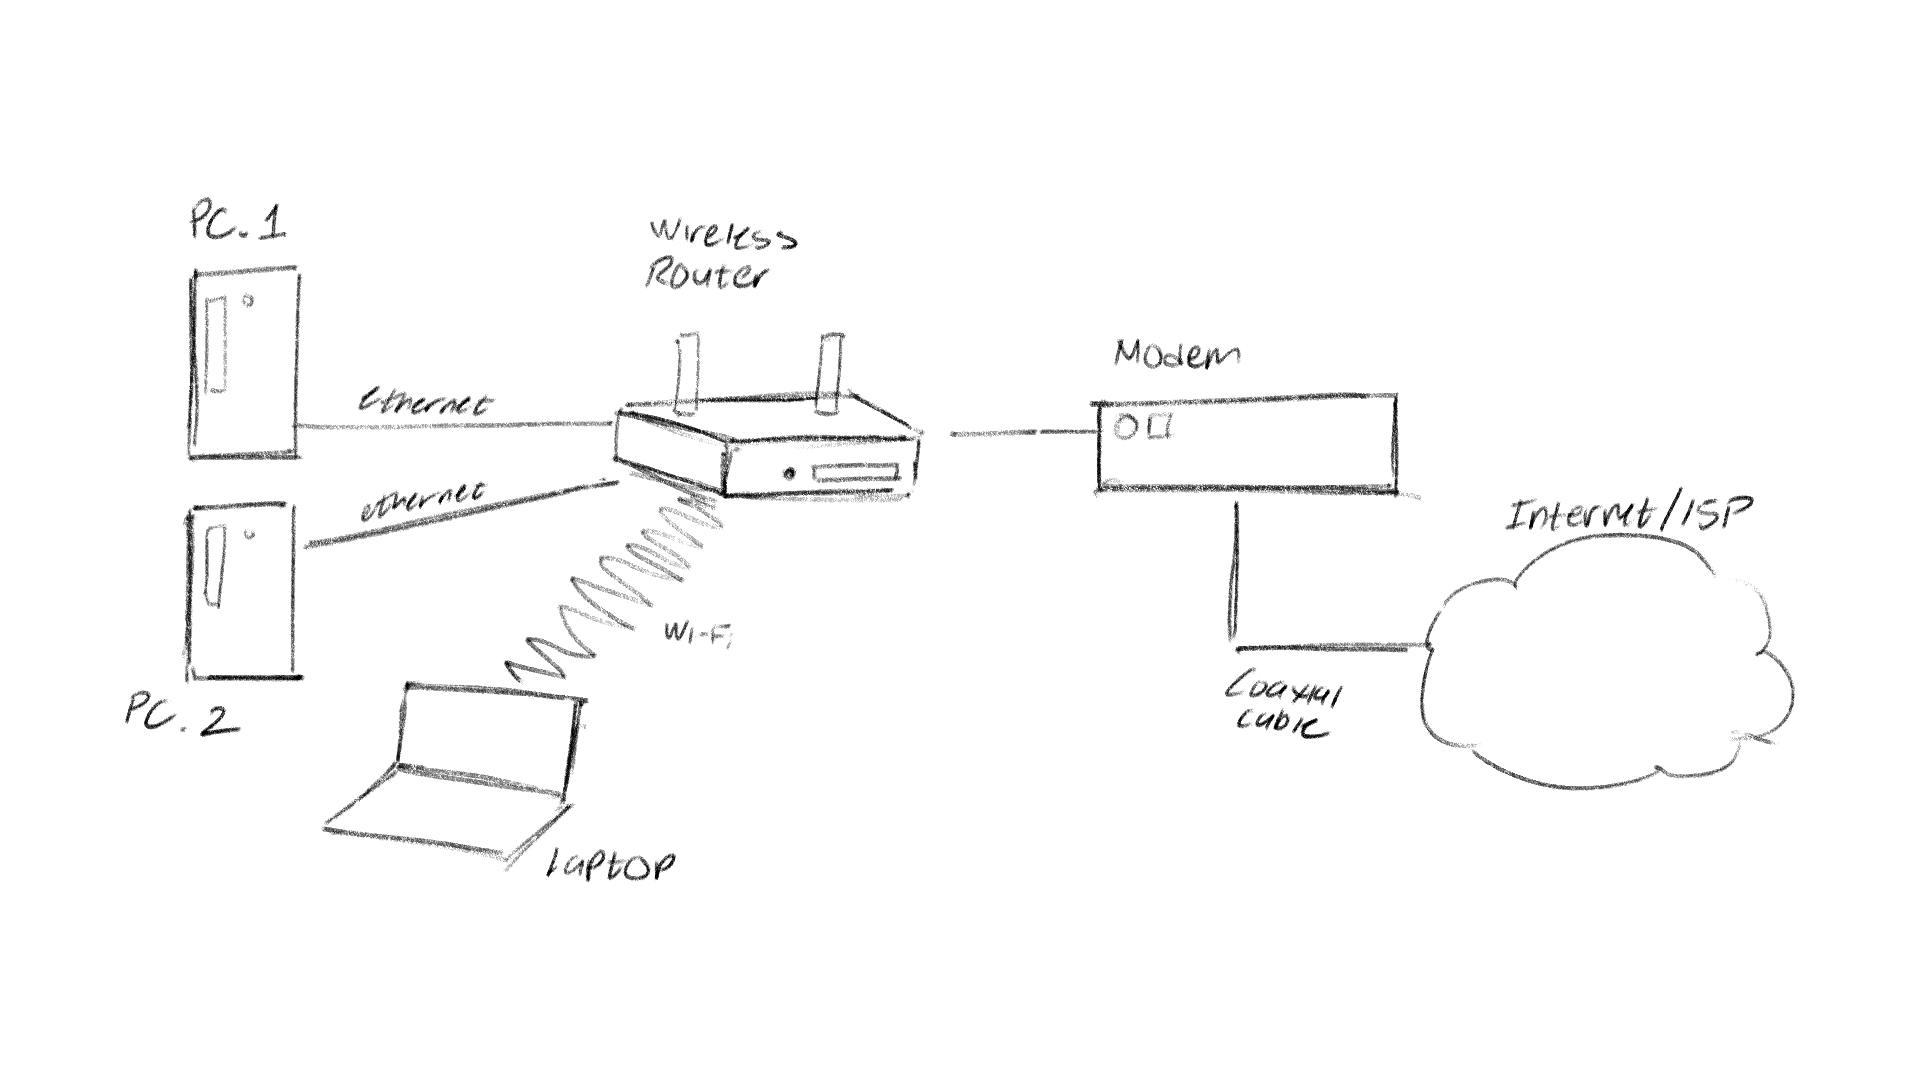 PC.1
Wireless
Router
ethernet
Modem
ethernet
Internet/ISP
Wi-Fi
PC.2
Coaxial
cable
laptop